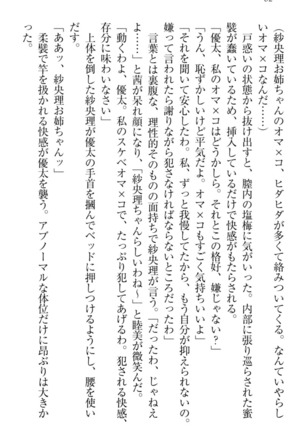 （紗央理お姉ちゃんのオマ×コ、ヒダヒダが多くて絡みついてくる。なんていやらし
いオマ×コなんだ……）
　戸惑いの状態から抜け出すと、膣内の塩梅に気がいった。内部に張り巡らされた蜜
襞が蠢いているため、挿入しているだけで快感がもたらされる。
「優太、私のオマ×コはどうかしら。それとこの格好、嫌じゃない？」
「うん、恥ずかしいけど平気だよ。オマ×コもすごく気持ちいいよ」
「それを聞いて安心したわ。私、ずっと我慢してたから、もう自分が抑えられないの。
嫌って言われたら謝りながら犯さなければならないところだったわ」
　言葉とは裏腹な、理性的そのものの面持ちで紗央理が言う。「だったわ、じゃねえ
よ……」と茜が呆れ顔になり、「紗央理ちゃんらしいわね～」と睦美が微笑んだ。
「動くわよ、優太。私のスケベオマ×コで、たっぷり犯してあげるわ。犯される快感、
存分に味わいなさい」
　上体を倒した紗央理が優太の手首を摑んでベッドに押しつけるようにし、腰を使い
だす。
「ああッ、紗央理お姉ちゃんッ」
　柔襞で竿を扱かれる快感が優太を襲う。アブノーマルな体位だけに昂ぶりは大きか